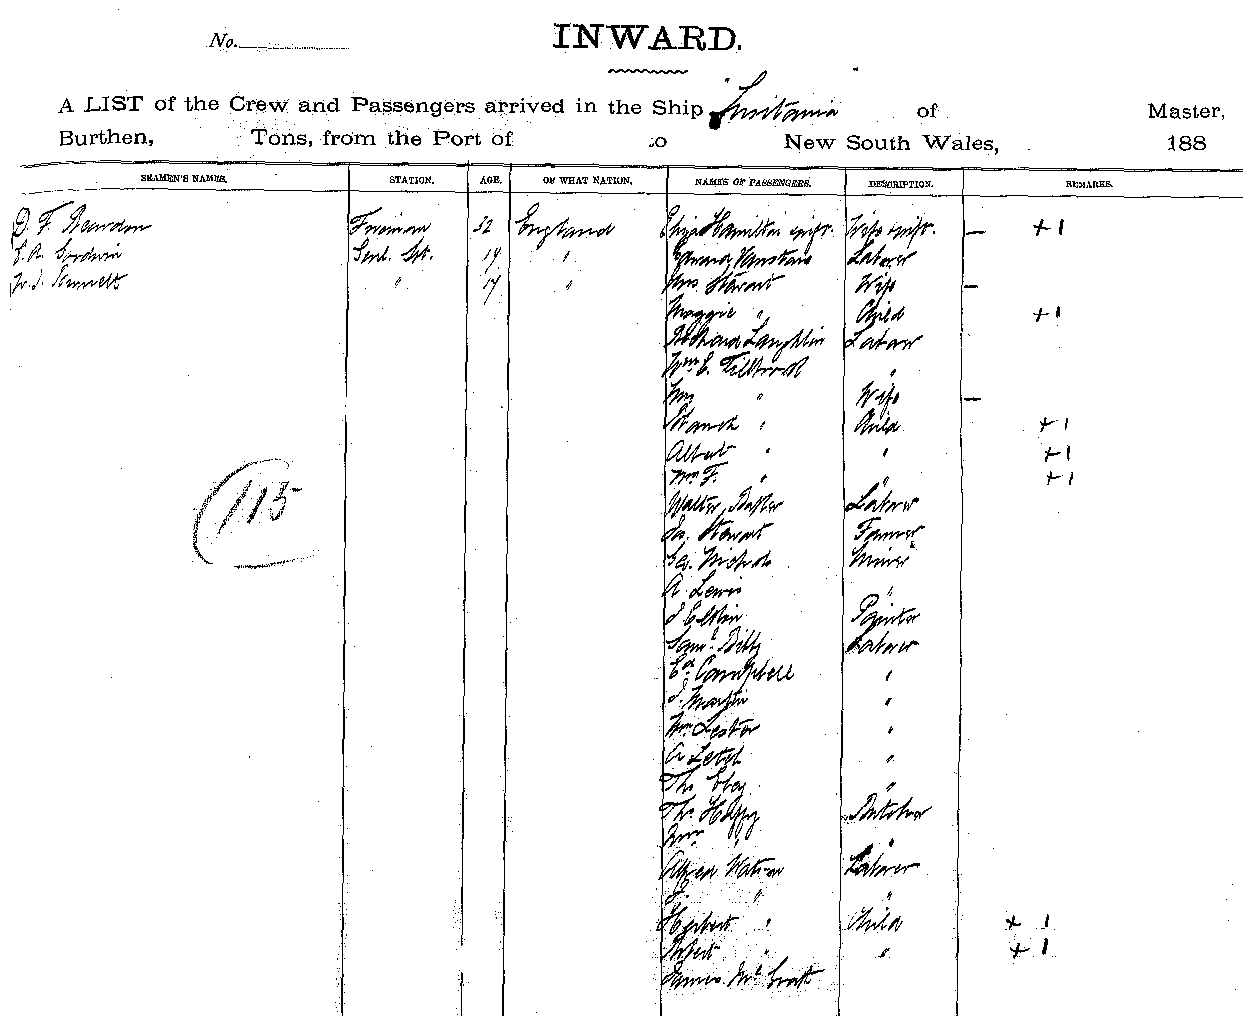 No.
INWARD.
A LIST of the Crew and Passengers arrived in the Ship Lusitania of Master,
Burthen, Tons, from the Port of to New South Wales, 188
SEAMEN'S NAMES. STATION. AGE. OF WHAT NATION. NAMES OF PASSENGERS. DESCRIPTION. REMARKS.
D. F. Fireman 32 England Eliza Hamilton Wife — +1
Goodwin Genl. Sst. 19 " Laborer
" 17 " Mrs Stewart Wife —
Maggie " Child +1
Richard Laughlin Laborer
Wm. E. Tillbrook "
Mrs " Wife —
" Child +1
Albert " " +1
Wm F. " " +1
Walter Laborer
Jas. Stewart Farmer
Geo. Nichols Miner
A Lewis "
115
J Elkin Painter
Saml. Laborer
Ed. Campbell "
J. Martin "
Wm. Lester "
A Letch "
Thos "
Thos Butcher
Wm " "
Alfred Watson Laborer
J. " "
Herbert " Child + 1
Robert " " + 1
James McGrath